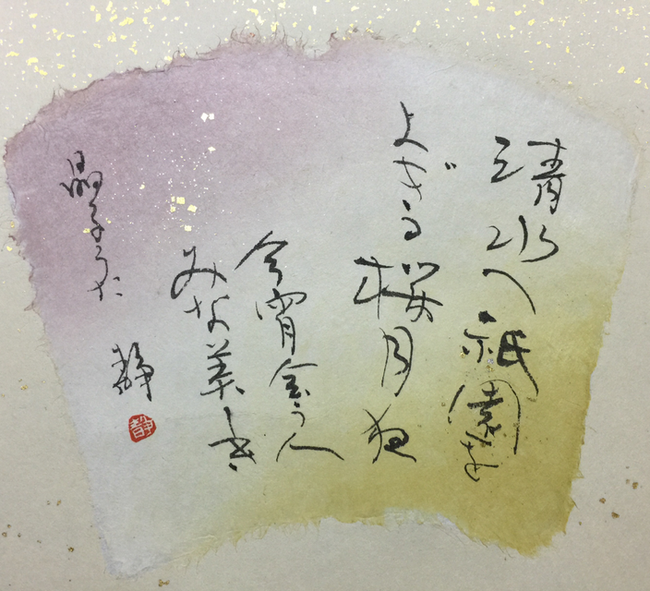 清水へ祇園を
よぎる桜月夜
今宵会う人
みな美き
晶子うた
静
静